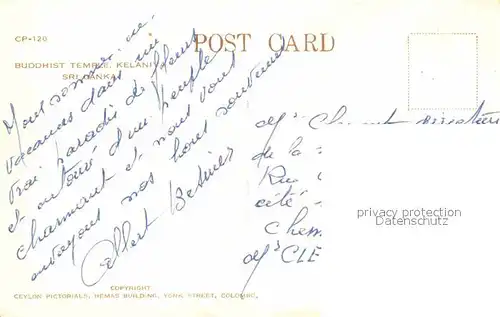 CP-120
POST CARD
BUDDHIST TEMPLE, KELANI
SRI LANKA
Nous sommes en
vacances dans un
vrai paradis de fleurs
et entouré d'un peuple
charmant et nous vous
envoyons nos bons souvenirs
Albert
de la
Rue
cité
CLE
privacy protection
Datenschutz
COPYRIGHT
CEYLON PICTORIALS, HEMAS BUILDING, YORK STREET, COLOMBO,